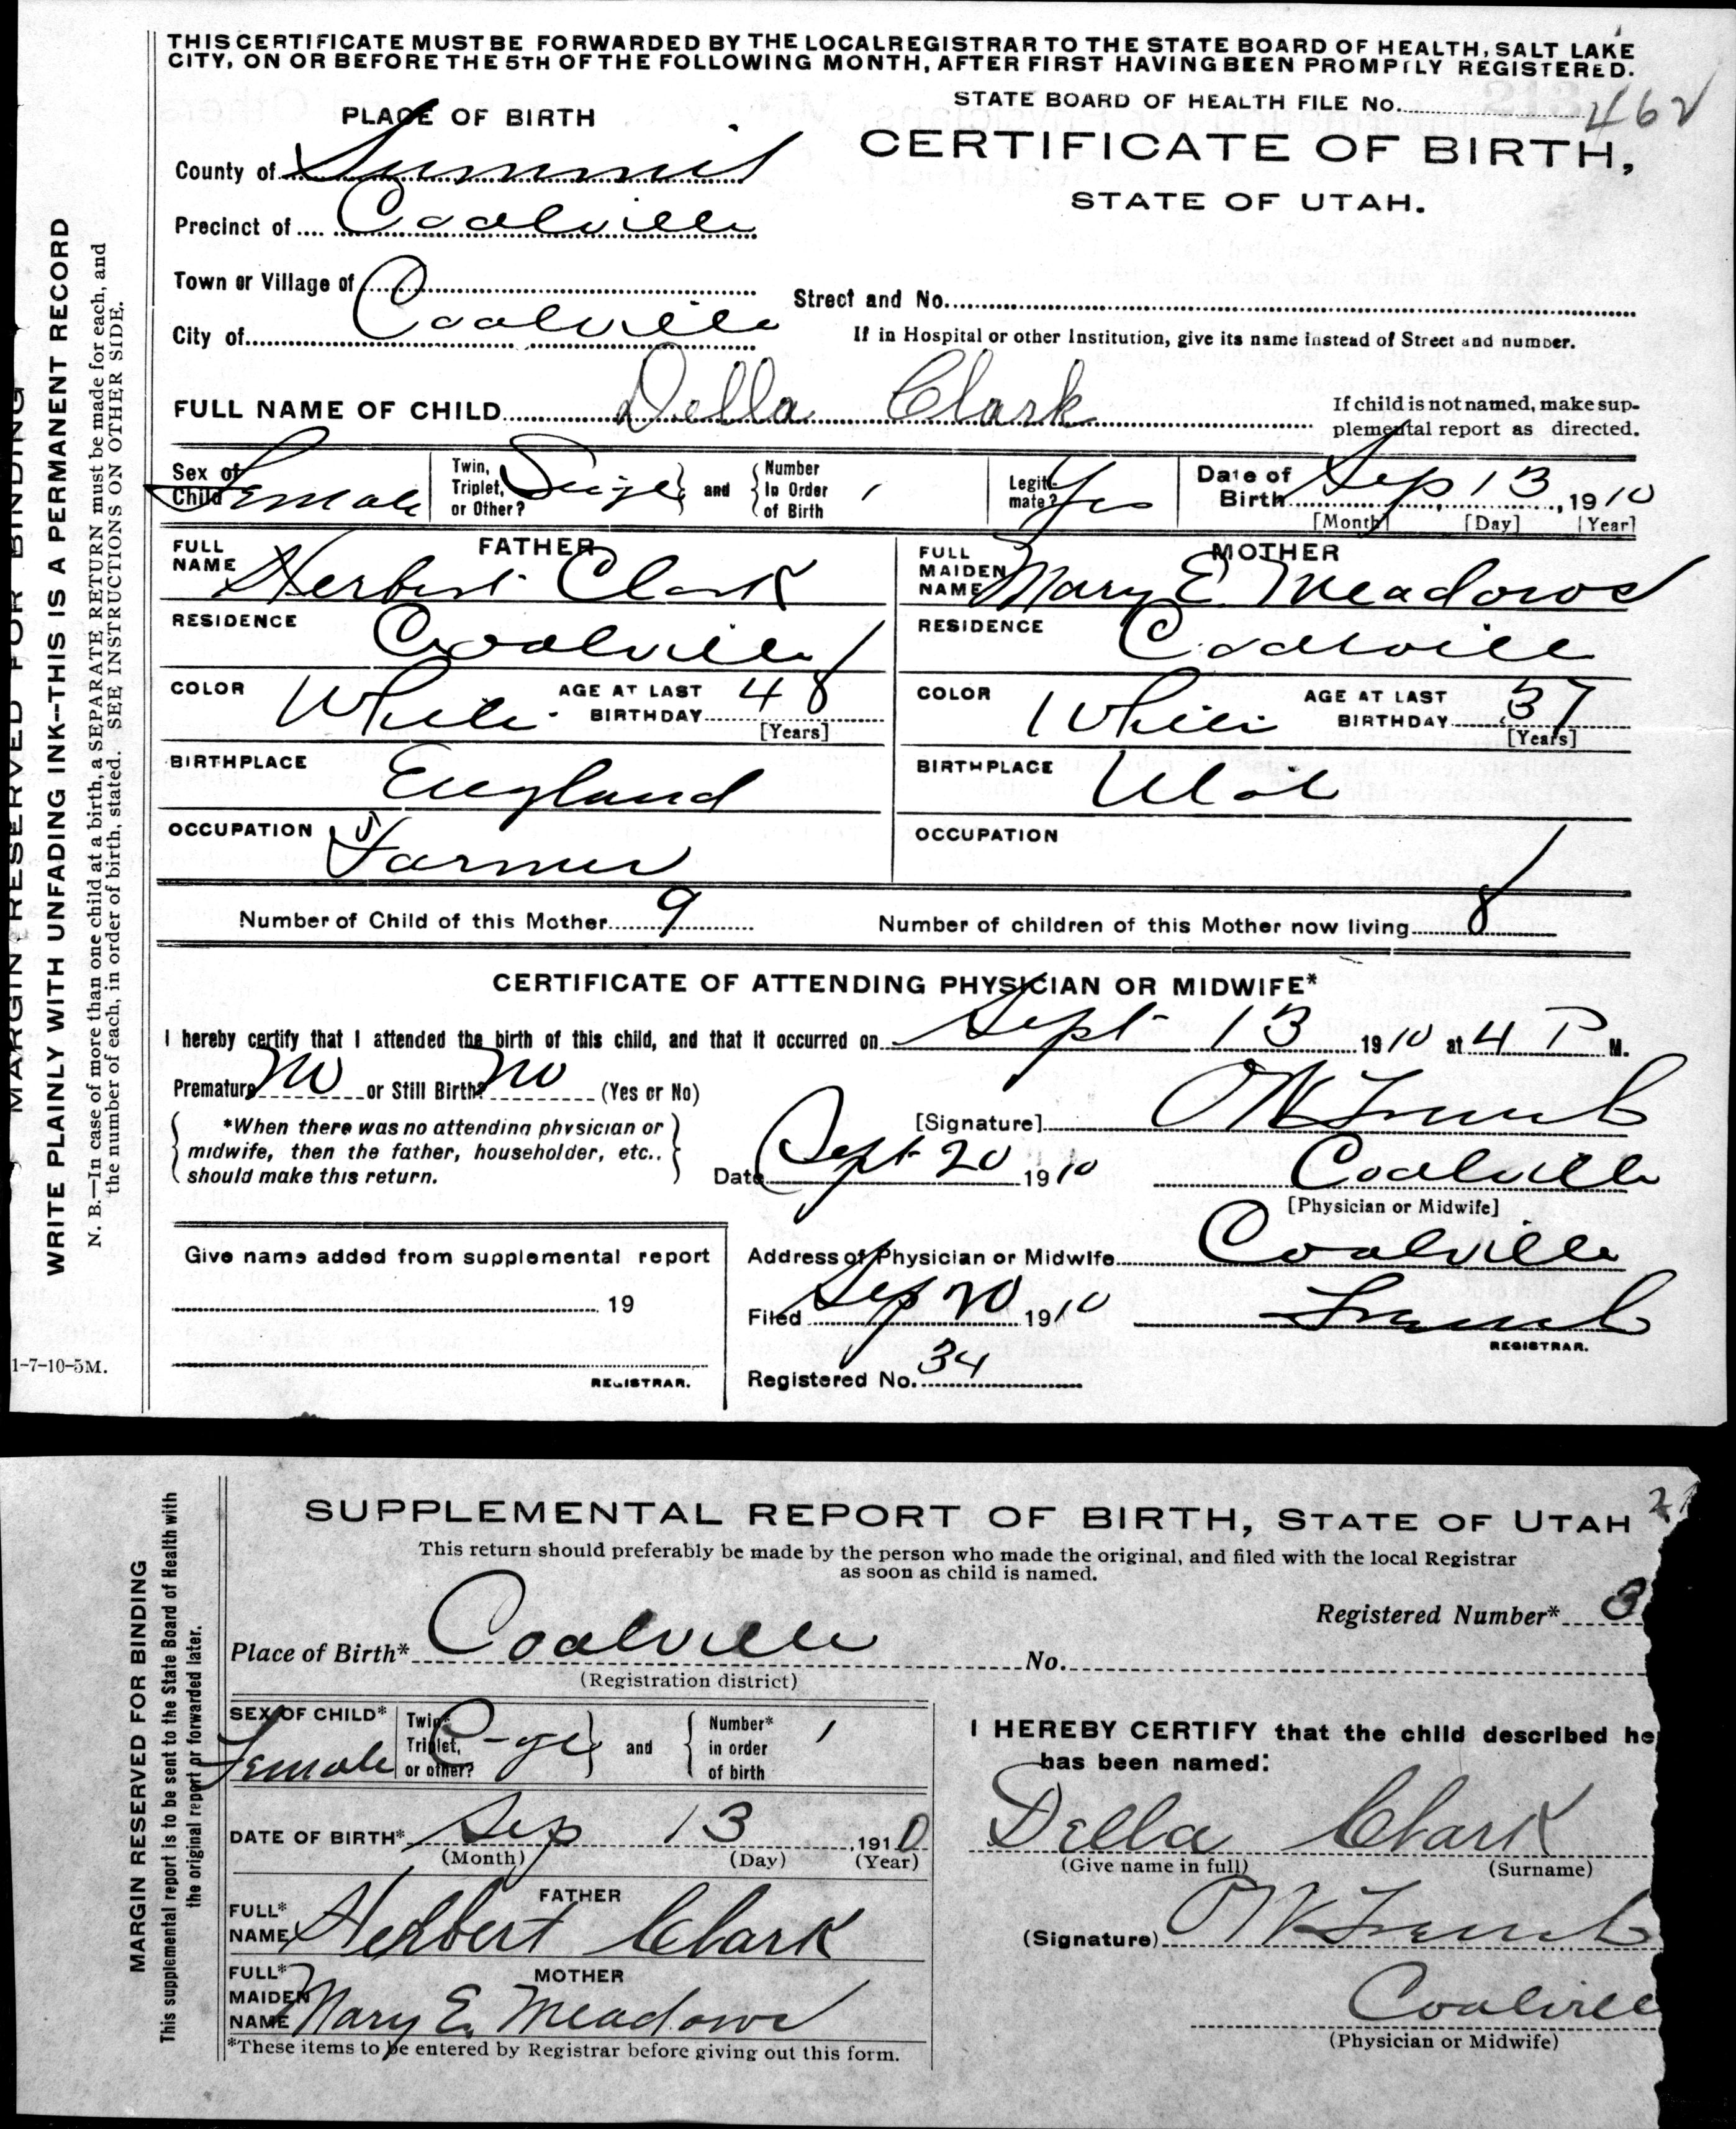 THIS CERTIFICATE MUST BE FORWARDED BY THE LOCAL REGISTRAR TO THE STATE BOARD OF HEALTH, SALT LAKE
CITY, ON OR BEFORE THE 5TH OF THE FOLLOWING MONTH, AFTER FIRST HAVING BEEN PROMPTLY REGISTERED.
STATE BOARD OF HEALTH FILE No. 462
PLACE OF BIRTH
CERTIFICATE OF BIRTH,
STATE OF UTAH.
County of Summit
Precinct of Coalville
Town or Village of
Street and No.
City of Coalville
If in Hospital or other Institution, give its name instead of Street and number.
FULL NAME OF CHILD Della Clark
If child is not named, make sup-
plemental report as directed.
Sex of
Child Female
Twin,
Triplet,
or Other?
and
Number
In Order
of Birth 1
Legit-
mate? Yes
Date of
Birth Sep 13, 1910
[Month] [Day] [Year]
FATHER
FULL
NAME Herbert Clark
MOTHER
FULL
MAIDEN
NAME Mary E. Meadows
RESIDENCE Coalville
RESIDENCE Coalville
COLOR White
AGE AT LAST
BIRTHDAY 48
[Years]
COLOR White
AGE AT LAST
BIRTHDAY 37
[Years]
BIRTHPLACE England
BIRTHPLACE Utah
OCCUPATION Farmer
OCCUPATION
Number of Child of this Mother 9
Number of children of this Mother now living 8
CERTIFICATE OF ATTENDING PHYSICIAN OR MIDWIFE*
I hereby certify that I attended the birth of this child, and that it occurred on Sept 13 1910 at 4 P M.
Premature No or Still Birth? No (Yes or No)
*When there was no attending physician or
midwife, then the father, householder, etc.,
should make this return.
[Signature]
Date Sept 20 1910
Coalville
[Physician or Midwife]
Give name added from supplemental report
19
REGISTRAR.
Address of Physician or Midwife Coalville
Filed Sep 20 1910
REGISTRAR.
Registered No. 34
MARGIN RESERVED FOR BINDING
WRITE PLAINLY WITH UNFADING INK--THIS IS A PERMANENT RECORD
N. B.—In case of more than one child at a birth, a SEPARATE RETURN must be made for each, and
the number of each, in order of birth, stated. SEE INSTRUCTIONS ON OTHER SIDE.
1-7-10-5M.
SUPPLEMENTAL REPORT OF BIRTH, STATE OF UTAH
This return should preferably be made by the person who made the original, and filed with the local Registrar
as soon as child is named.
Registered Number* 3
Place of Birth* Coalville
No.
(Registration district)
SEX OF CHILD*
Female
Twin*
Triplet,
or other?
and
Number*
in order
of birth
1
DATE OF BIRTH* Sep 13, 1910
(Month) (Day) (Year)
FATHER
FULL*
NAME Herbert Clark
MOTHER
FULL*
MAIDEN
NAME Mary E. Meadows
*These items to be entered by Registrar before giving out this form.
I HEREBY CERTIFY that the child described he
has been named:
Della Clark
(Give name in full) (Surname)
(Signature)
Coalville
(Physician or Midwife)
MARGIN RESERVED FOR BINDING
This supplemental report is to be sent to the State Board of Health with
the original report or forwarded later.